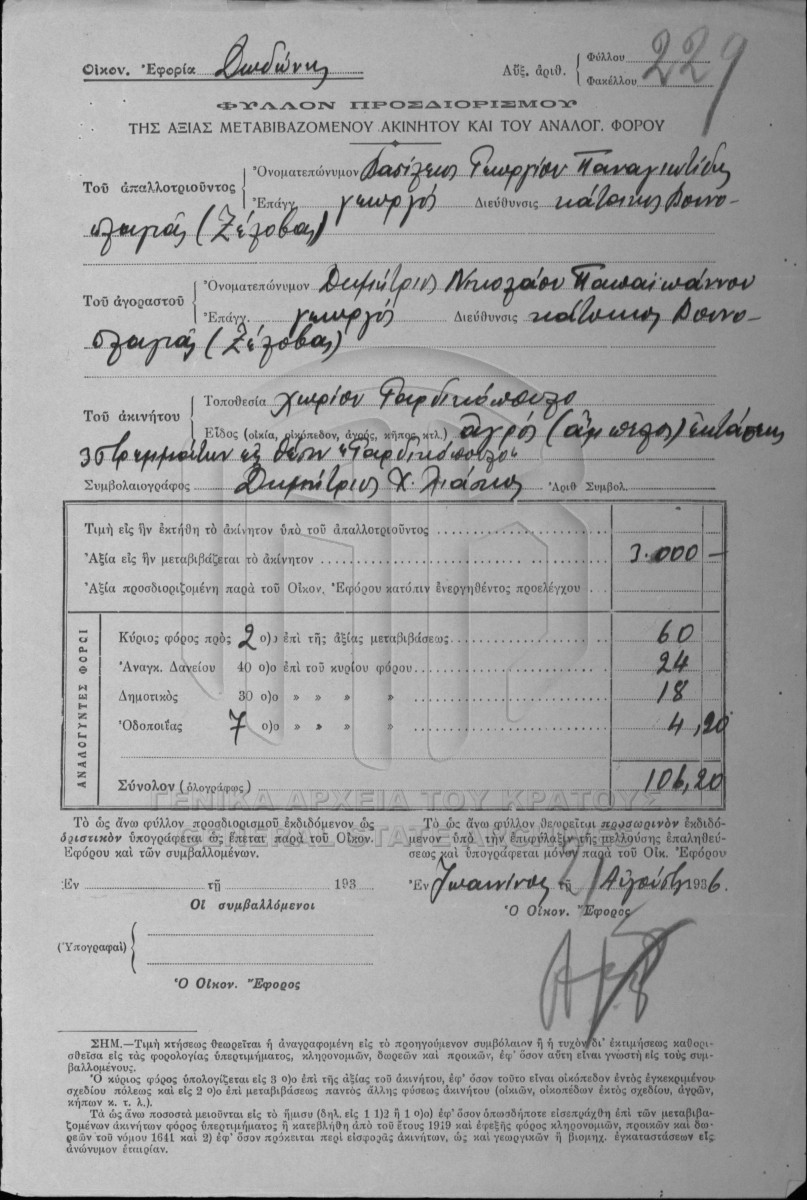 Οἰκον. Ἐφορία Δωδώνης
Αὔξ. ἀριθ. { Φύλλου
Φακέλλου 229
ΦΥΛΛΟΝ ΠΡΟΣΔΙΟΡΙΣΜΟΥ
ΤΗΣ ΑΞΙΑΣ ΜΕΤΑΒΙΒΑΖΟΜΕΝΟΥ ΑΚΙΝΗΤΟΥ ΚΑΙ ΤΟΥ ΑΝΑΛΟΓ. ΦΟΡΟΥ
Τοῦ ἀπαλλοτριοῦντος { Ὀνοματεπώνυμον Βασίλειος Γεωργίου Παναγιωτίδης
Ἐπάγγ. γεωργός Διεύθυνσις κάτοικος Βουνο-
πλαγιᾶς (Ζέλοβας)
Τοῦ ἀγοραστοῦ { Ὀνοματεπώνυμον Δημήτριος Νικολάου Παπαϊωάννου
Ἐπάγγ. γεωργός Διεύθυνσις κάτοικος Βουνο-
πλαγιᾶς (Ζέλοβας)
Τοῦ ἀκινήτου { Τοποθεσία χωρίον Γαρδικόπουλο
Εἶδος (οἰκία, οἰκόπεδον, ἀγρός, κῆπος κτλ.) ἀγρός (ἄμπελος) ἐκτάσεως
3 στρεμμάτων εἰς θέσιν «Γαρδικόπουλο»
Συμβολαιογράφος Δημήτριος Χ. Λιάπης Ἀριθ Συμβολ.
Τιμὴ εἰς ἣν ἐκτήθη τὸ ἀκίνητον ὑπὸ τοῦ ἀπαλλοτριοῦντος
Ἀξία εἰς ἣν μεταβιβάζεται τὸ ἀκίνητον 3.000 —
Ἀξία προσδιοριζομένη παρὰ τοῦ Οἰκον. Ἐφόρου κατόπιν ἐνεργηθέντος προελέγχου
ΑΝΑΛΟΓΟΥΝΤΕΣ ΦΟΡΟΙ
Κύριος φόρος πρὸς 2 ο)ο ἐπὶ τῆς ἀξίας μεταβιβάσεως 60
Ἀναγκ. Δανείου 40 ο)ο ἐπὶ τοῦ κυρίου φόρου 24
Δημοτικὸς 30 ο)ο » » » » 18
Ὁδοποιΐας 7 ο)ο » » » » 4,20
Σύνολον (ὁλογράφως) 106,20
ΓΕΝΙΚΑ ΑΡΧΕΙΑ ΤΟΥ ΚΡΑΤΟΥΣ
GENERAL STATE ARCHIVES
Τὸ ὡς ἄνω φύλλον προσδιορισμοῦ ἐκδιδόμενον ὡς
ὁριστικὸν ὑπογράφεται ὡς ἕπεται παρὰ τοῦ Οἰκον.
Ἐφόρου καὶ τῶν συμβαλλομένων.
Ἐν τῇ 193
Οἱ συμβαλλόμενοι
(Ὑπογραφαὶ) {
Ὁ Οἰκον. Ἔφορος
Τὸ ὡς ἄνω φύλλον θεωρεῖται προσωρινὸν ἐκδιδό-
μενον ὑπὸ τὴν ἐπιφύλαξιν τῆς μελλούσης ἐπαληθεύ-
σεως καὶ ὑπογράφεται μόνον παρὰ τοῦ Οἰκ. Ἐφόρου
Ἐν Ἰωαννίνοις τῇ Αὐγούστου 1936.
Ὁ Οἰκον. Ἔφορος
ΣΗΜ.—Τιμὴ κτήσεως θεωρεῖται ἡ ἀναγραφομένη εἰς τὸ προηγούμενον συμβόλαιον ἢ ἡ τυχὸν δι' ἐκτιμήσεως καθορι-
σθεῖσα εἰς τὰς φορολογίας ὑπερτιμήματος, κληρονομιῶν, δωρεῶν καὶ προικῶν, ἐφ' ὅσον αὕτη εἶναι γνωστὴ εἰς τοὺς συμ-
βαλλομένους.
Ὁ κύριος φόρος ὑπολογίζεται εἰς 3 ο)ο ἐπὶ τῆς ἀξίας τοῦ ἀκινήτου, ἐφ' ὅσον τοῦτο εἶναι οἰκόπεδον ἐντὸς ἐγκεκριμένου
σχεδίου πόλεως καὶ εἰς 2 ο)ο ἐπὶ μεταβιβάσεως παντὸς ἄλλης φύσεως ἀκινήτου (οἰκιῶν, οἰκοπέδων ἐκτὸς σχεδίου, ἀγρῶν,
κήπων κ. τ. λ.).
Τὰ ὡς ἄνω ποσοστὰ μειοῦνται εἰς τὸ ἥμισυ (δηλ. εἰς 1 1)2 ἢ 1 ο)ο) ἐφ' ὅσον ὁπωσδήποτε εἰσεπράχθη ἐπὶ τῶν μεταβιβα-
ζομένων ἀκινήτων φόρος ὑπερτιμήματος ἢ κατεβλήθη ἀπὸ τοῦ ἔτους 1919 καὶ ἐφεξῆς φόρος κληρονομιῶν, προικῶν καὶ δω-
ρεῶν τοῦ νόμου 1641 καὶ 2) ἐφ' ὅσον πρόκειται περὶ εἰσφορᾶς ἀκινήτων, ὡς καὶ γεωργικῶν ἢ βιομηχ. ἐγκαταστάσεων εἰς
ἀνώνυμον ἑταιρίαν.